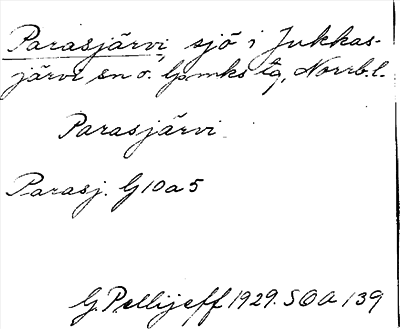 Parasjärvi, sjö i Jukkas-
järvi sn o. lpmks tg, Norrb. l.
Parasjärvi
Parasj. G10a5
G. Pellijeff 1929. SOA 139